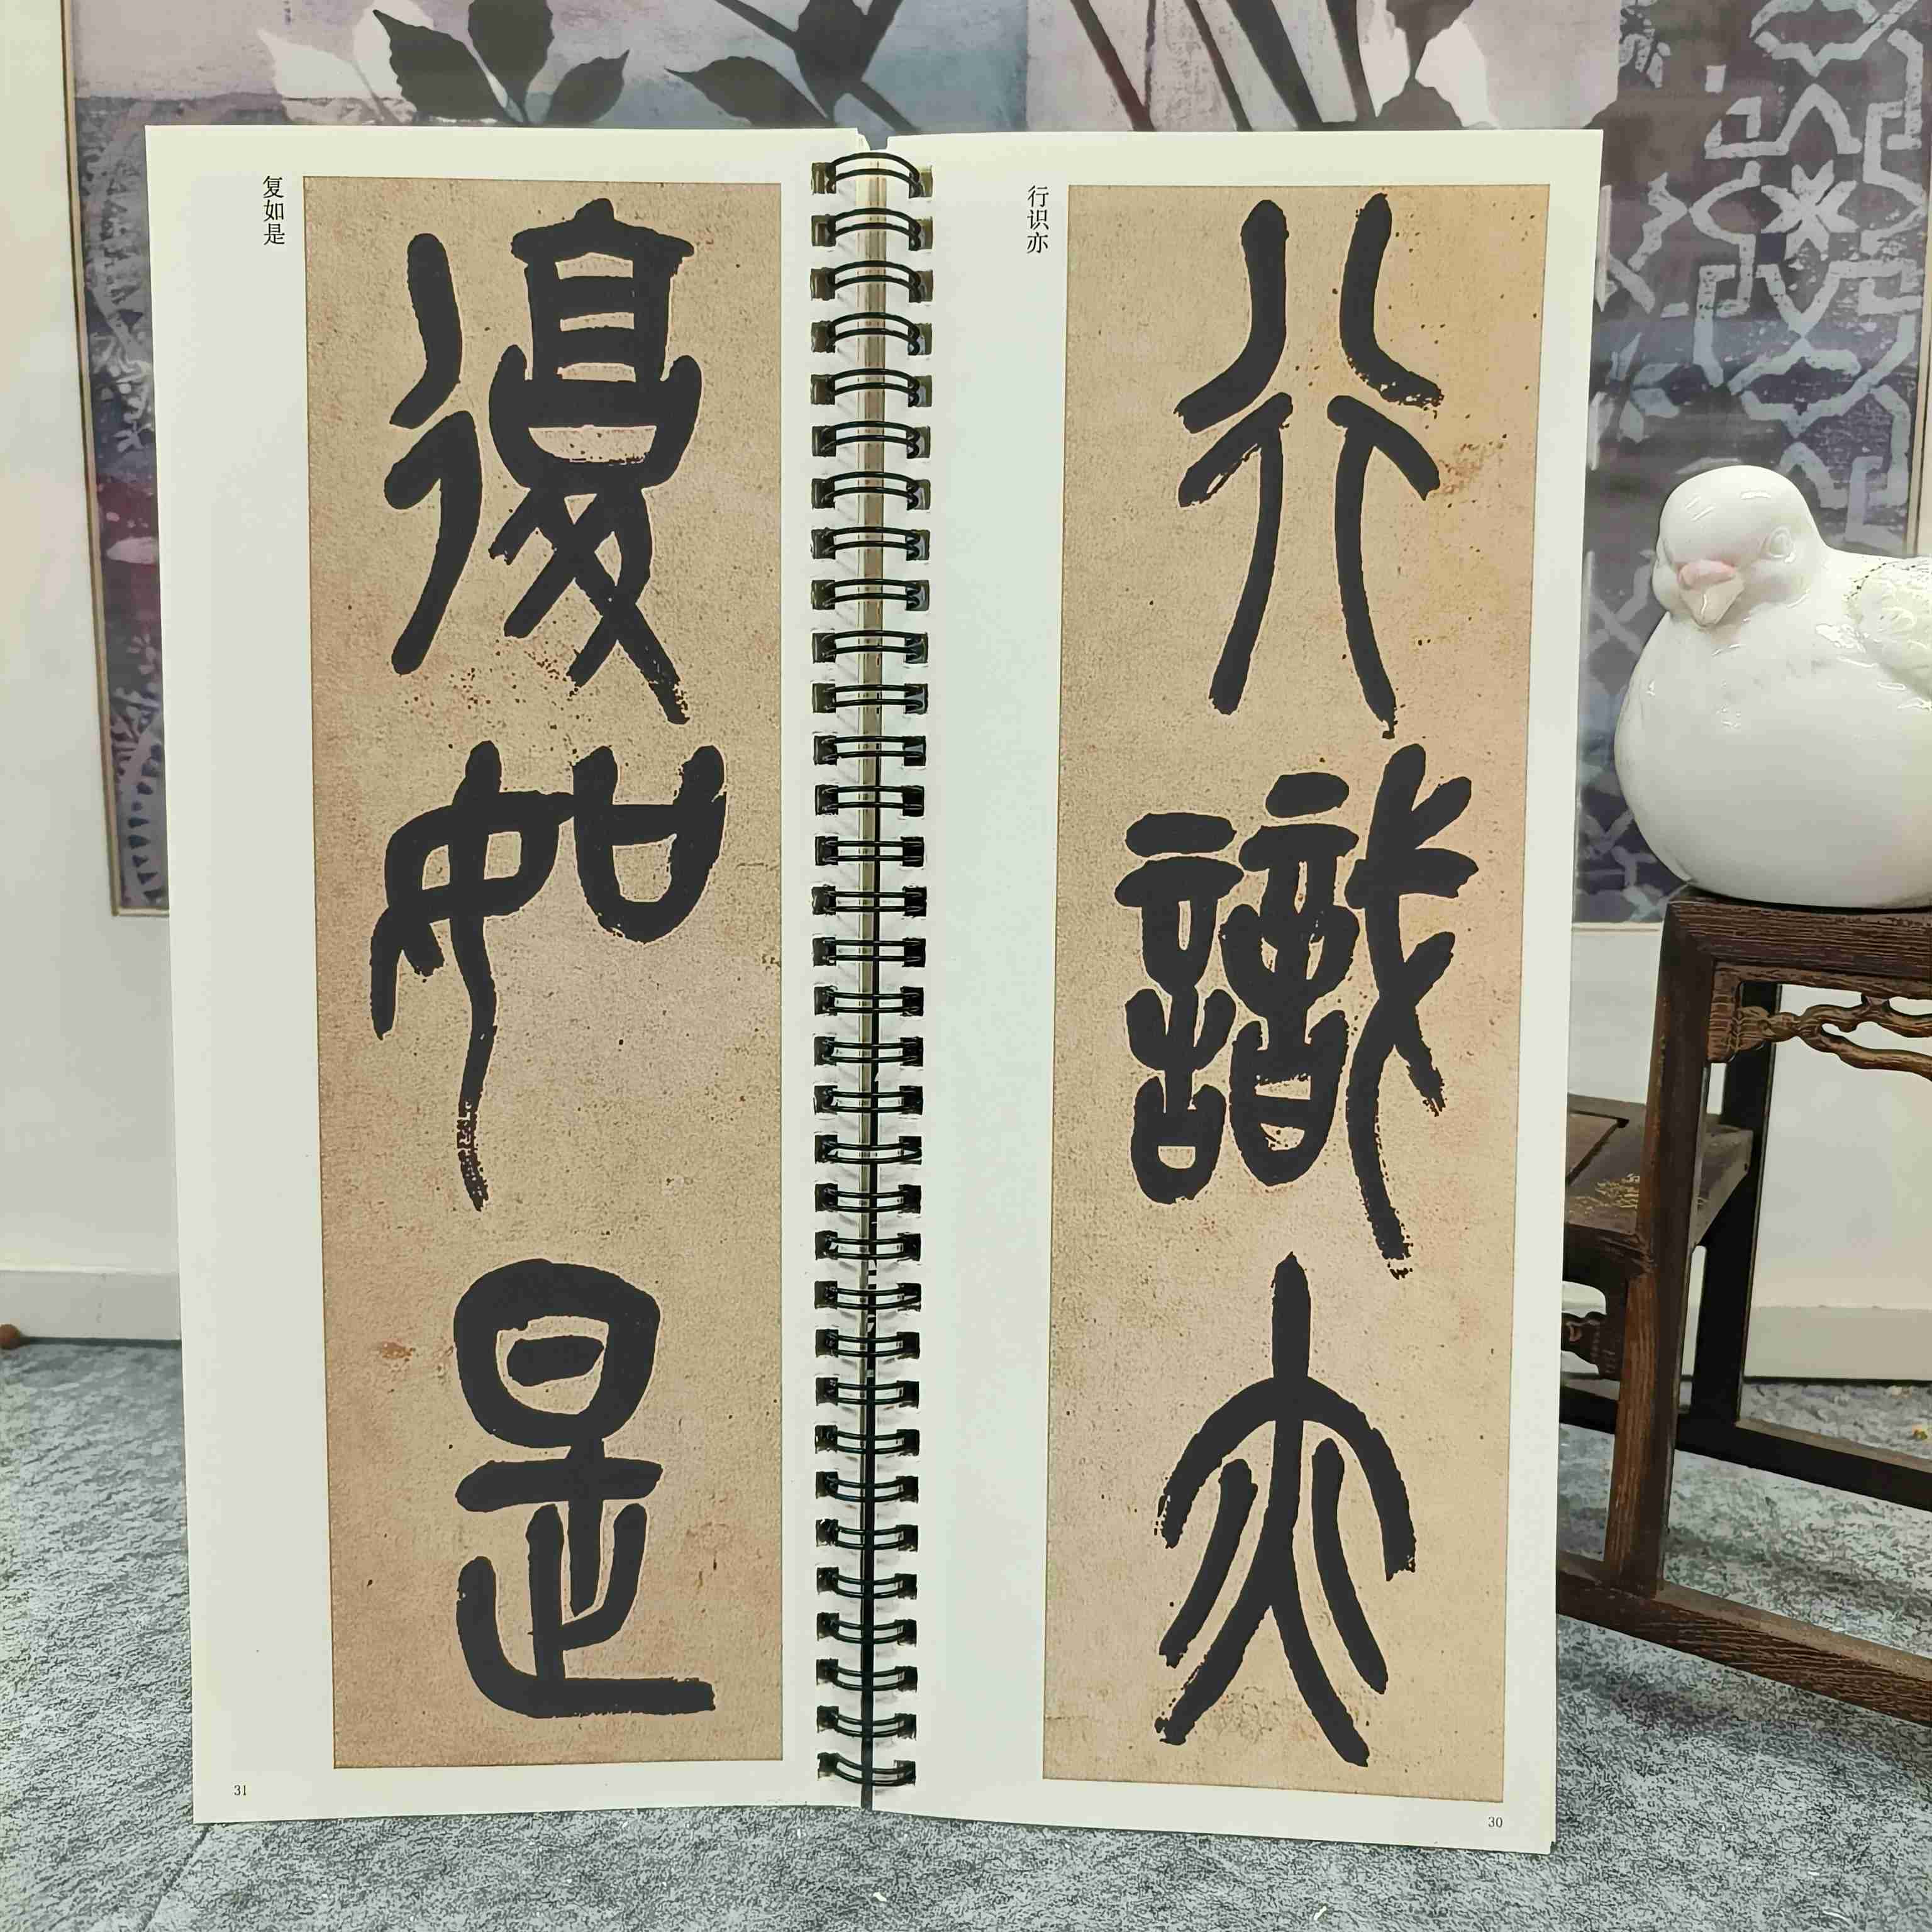 行识亦
行識亦
30
复如是
復如是
31